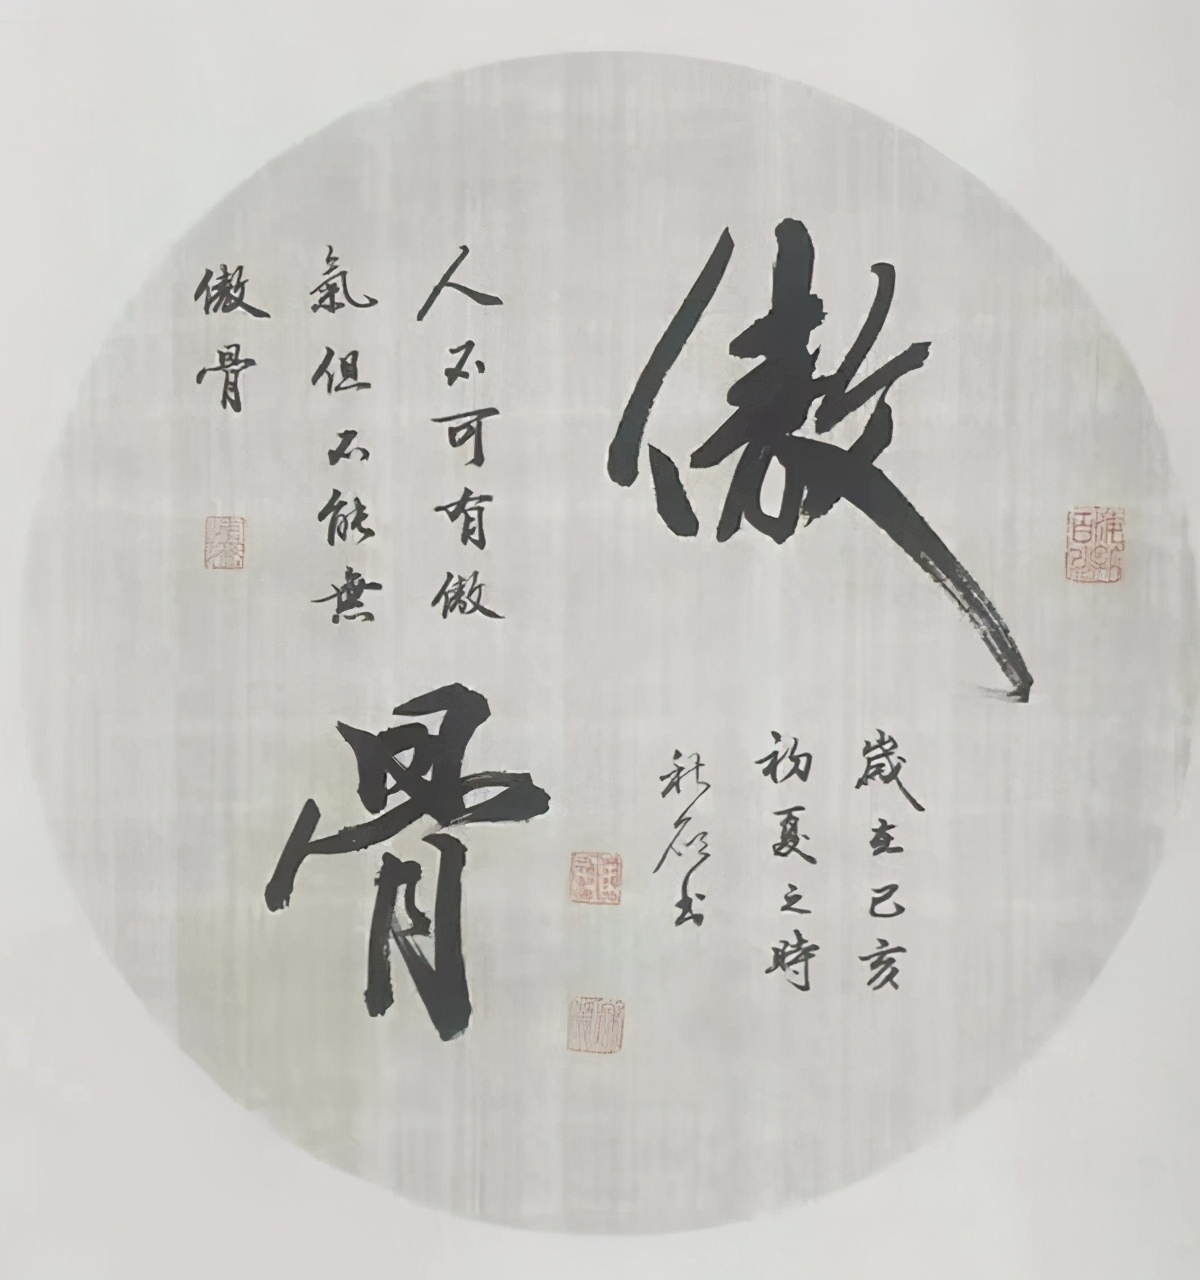 傲
骨
人不可有傲
氣但不能無
傲骨
歲在己亥
初夏之時
秋碩書